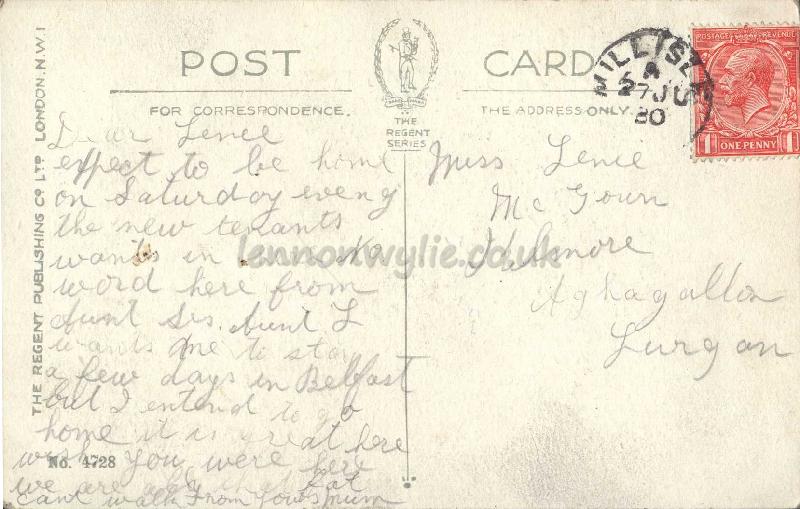 POST CARD
FOR CORRESPONDENCE.
THE ADDRESS ONLY.
THE REGENT SERIES
THE REGENT PUBLISHING Co LTD LONDON. N.W.1
No. 4728
Dear Lenee
expect to be home
on Saturday eveng
the new tenants
wants in no
word here from
Aunt Sis. Aunt L
wants me to stay
a few days in Belfast
but I entend to go
home it is great here
wish you were here
we are all that fat
cant walk From yours mum
Miss Lenie
Mc Gown
Helmore
Aghagallon
Lurgan
MILLISL
A
27 JU
30
POSTAGE REVENUE
1 ONE PENNY 1
lennonwylie.co.uk